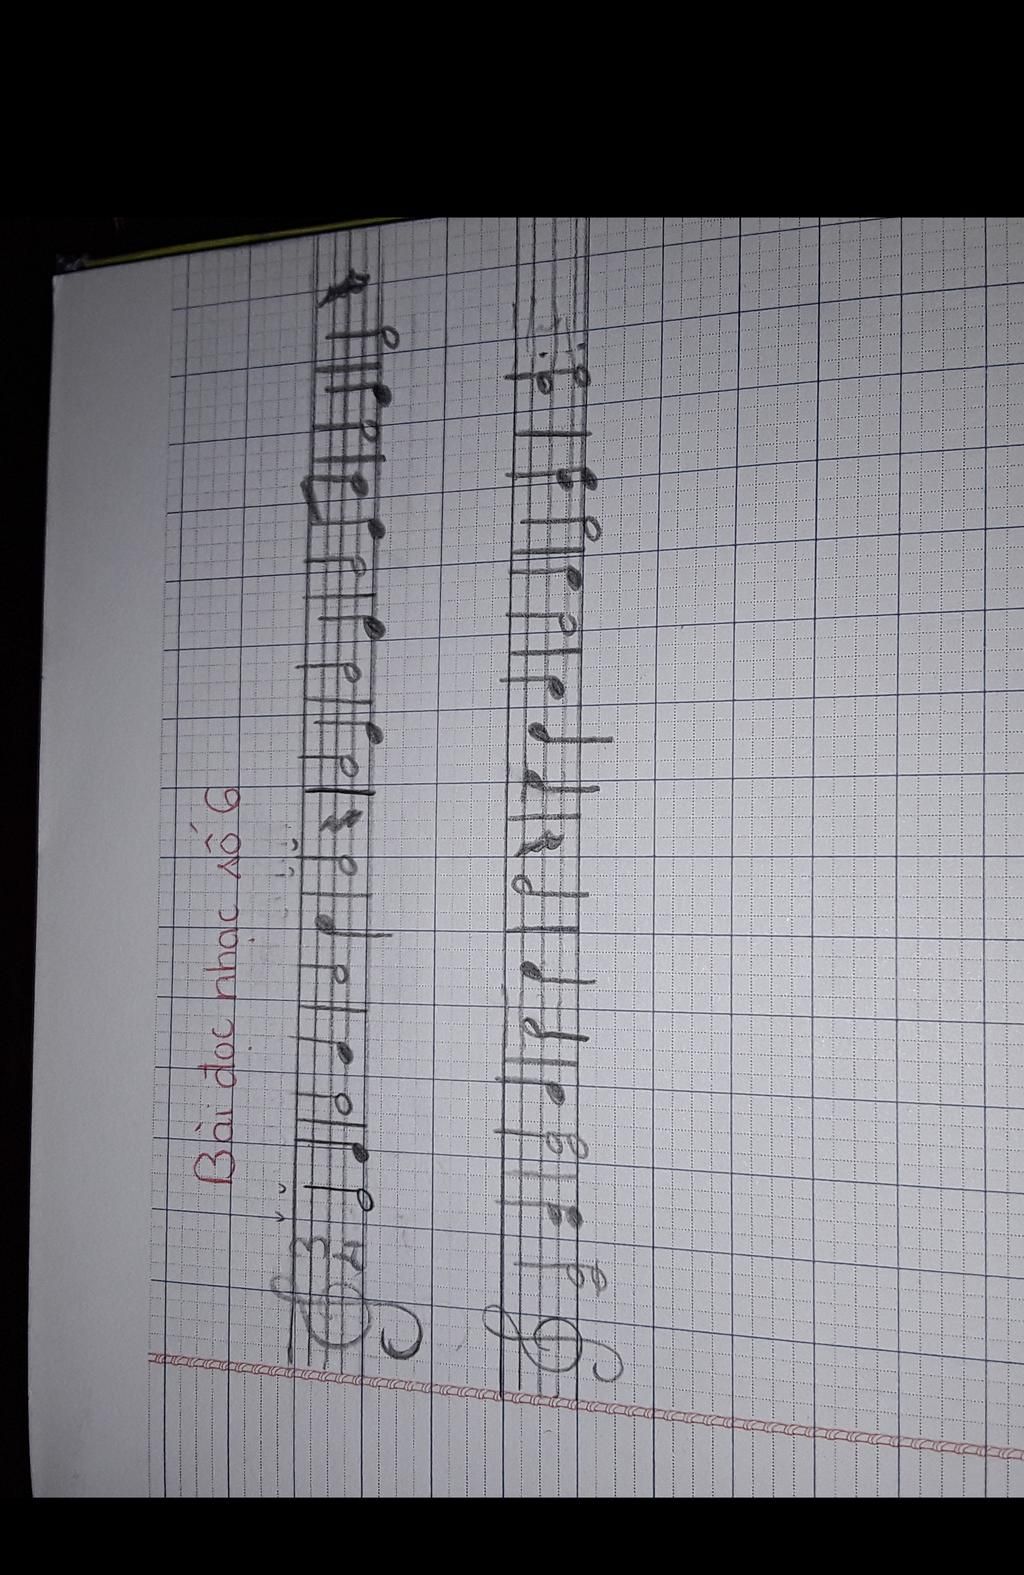 Bài đọc nhạc số 6
3
4